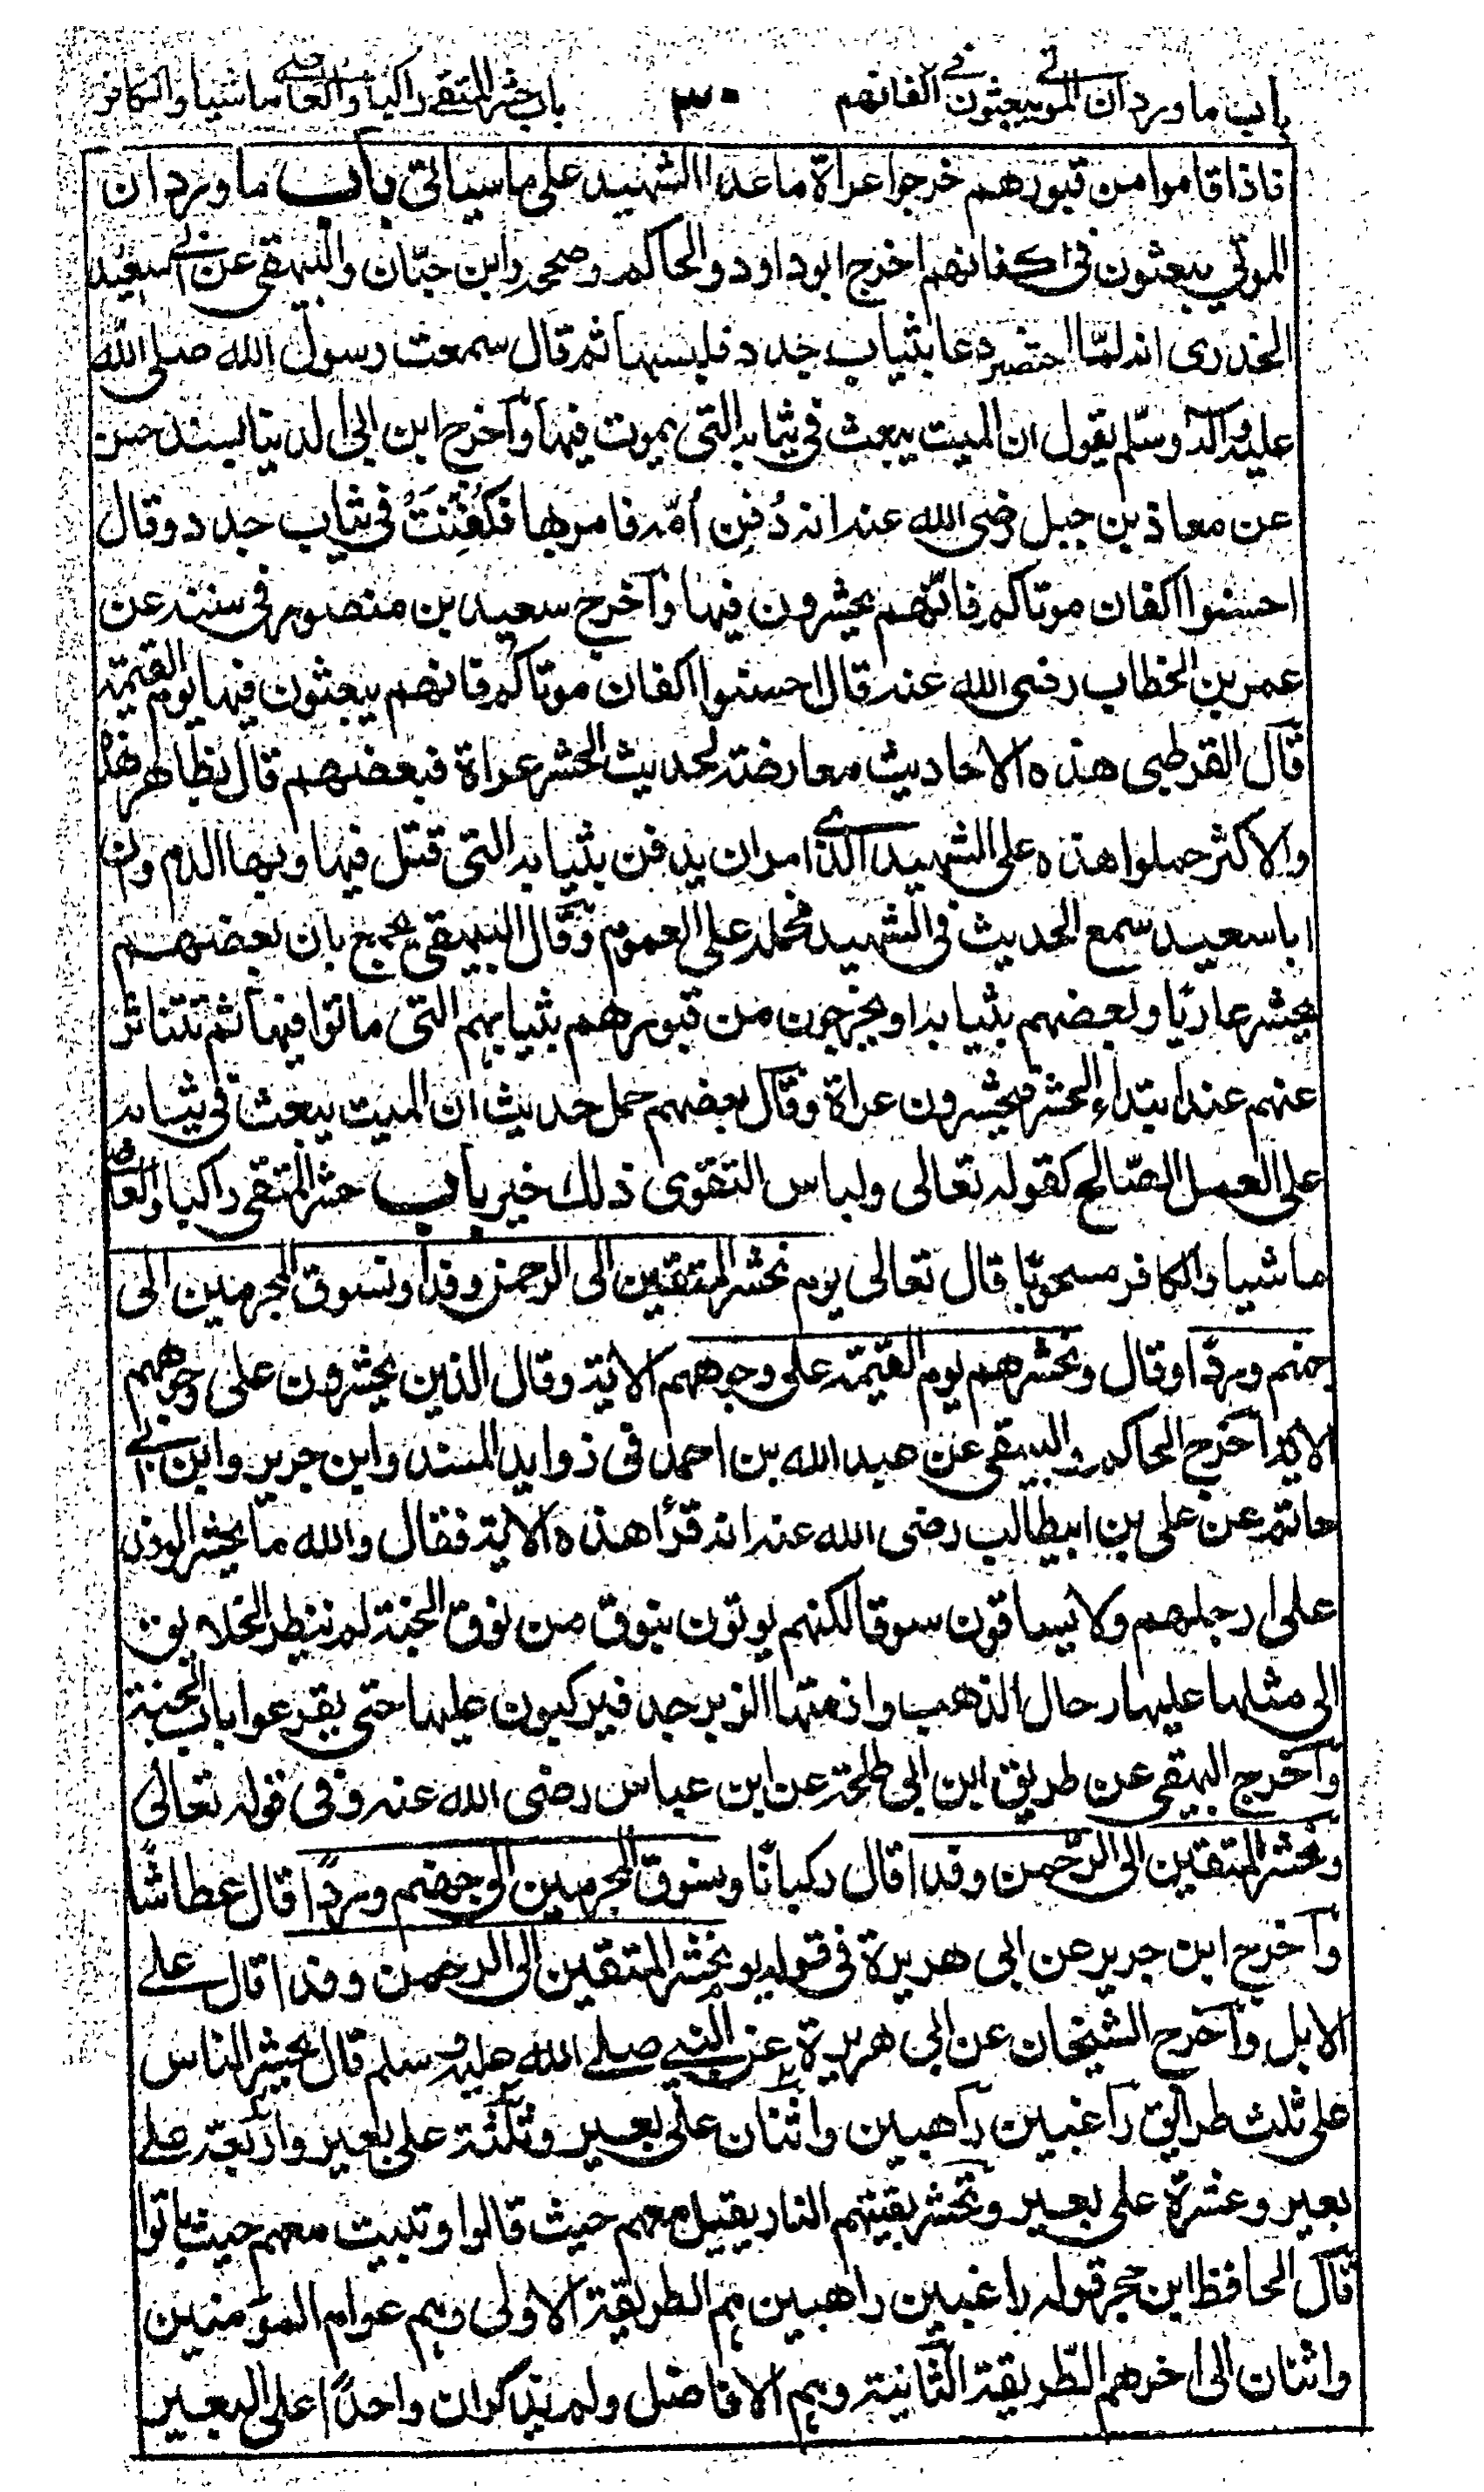 باب ما ورد ان الموتى يبعثون في اكفانهم ٣٠ باب حشر المتقى راكبا والعاصى ماشيا والكافر
فاذا قاموا من قبورهم خرجوا عراة ما عدا الشهيد على ما سياتى باب ما ورد ان
الموتى يبعثون فى اكفانهم اخرج ابو داود والحاكم وصححه وابن حبّان والبيهقى عن ابى سعيد
الخدرى انه لمّا احتضر دعا بثياب جدد فلبسها ثم قال سمعت رسول الله صلى الله
عليه وآله وسلّم يقول ان الميت يبعث فى ثيابه التى يموت فيها وآخرج ابن ابى الدنيا بسند حسن
عن معاذ بن جبل رضى الله عنه انه دُفِن اُمّه فامر بها فكُفِّنَتْ فى ثياب جدد وقال
احسنوا اكفان موتاكم فانّهم يحشرون فيها وآخرج سعيد بن منصور فى سننه عن
عمر بن الخطاب رضى الله عنه قال احسنوا اكفان موتاكم فانهم يبعثون فيها يوم القيمة
قال القرطبى هذه الاحاديث معارضة لحديث الحشر عراة فبعضهم قال بظاهر هذا
والاكثر حملوا هذه على الشهيد الذى امر ان يدفن بثيابه التى قتل فيها وبها الدم وان
ابا سعيد سمع الحديث فى الشهيد فحمله على العموم وقال البيهقى يجمع بان بعضهم
يحشر عاريًا وبعضهم بثيابه او يخرجون من قبورهم بثيابهم التى ماتوا فيها ثم تتناثر
عنهم عند ابتداء الحشر فيحشرون عراة وقال بعضهم حمل حديث ان الميت يبعث فى ثيابه
على العمل الصّالح كقوله تعالى ولباس التقوى ذلك خير باب حشر المتقى راكبا والعاصى
ماشيا والكافر مسحوبًا قال تعالى يوم نحشر المتقين الى الرحمن وفدا ونسوق المجرمين الى
جهنم وردًا وقال ونحشرهم يوم القيمة على وجوههم الاية وقال الذين يحشرون على وجوههم
الاية اخرج الحاكم والبيهقى عن عبد الله بن احمد فى زوايد المسند وابن جرير وابن ابى
حاتم عن على بن ابيطالب رضى الله عنه انه قرأ هذه الاية فقال والله ما يحشر الوفد
على ارجلهم ولا يساقون سوقا لكنهم يوتون بنوق من نوق الجنة لم ننظر الخلايق
الى مثلها عليها رحال الذهب وازمتها الزبرجد فيركبون عليها حتى يقرعوا باب الجنة
وآخرج البيهقى عن طريق ابن ابى طلحة عن ابن عباس رضى الله عنه وفى قوله تعالى
ونحشر المتقين الى الرّحمن وفدا قال ركبانًا ونسوق المجرمين الى جهنم وردًا قال عطاشًا
وآخرج ابن جرير عن ابى هريرة فى قوله يوم نحشر المتقين الى الرحمن وفدا قال على
الابل وآخرج الشيخان عن ابى هريرة عن النبى صلى الله عليه وسلم قال يحشر الناس
على ثلث طرايق راغبين راهبين واثنان على بعير وثلثة على بعير واربعة على
بعير وعشرة على بعير وتحشر بقيتهم النار يقيل معهم حيث قالوا وتبيت معهم حيث باتوا
قال الحافظ ابن حجر قوله راغبين راهبين هم الطريقة الاولى وهم عوام المؤمنين
واثنان الى اخرهم الطّريقة الثّانية وهم الافاضل ولم يذكر ان واحدًا على البعير